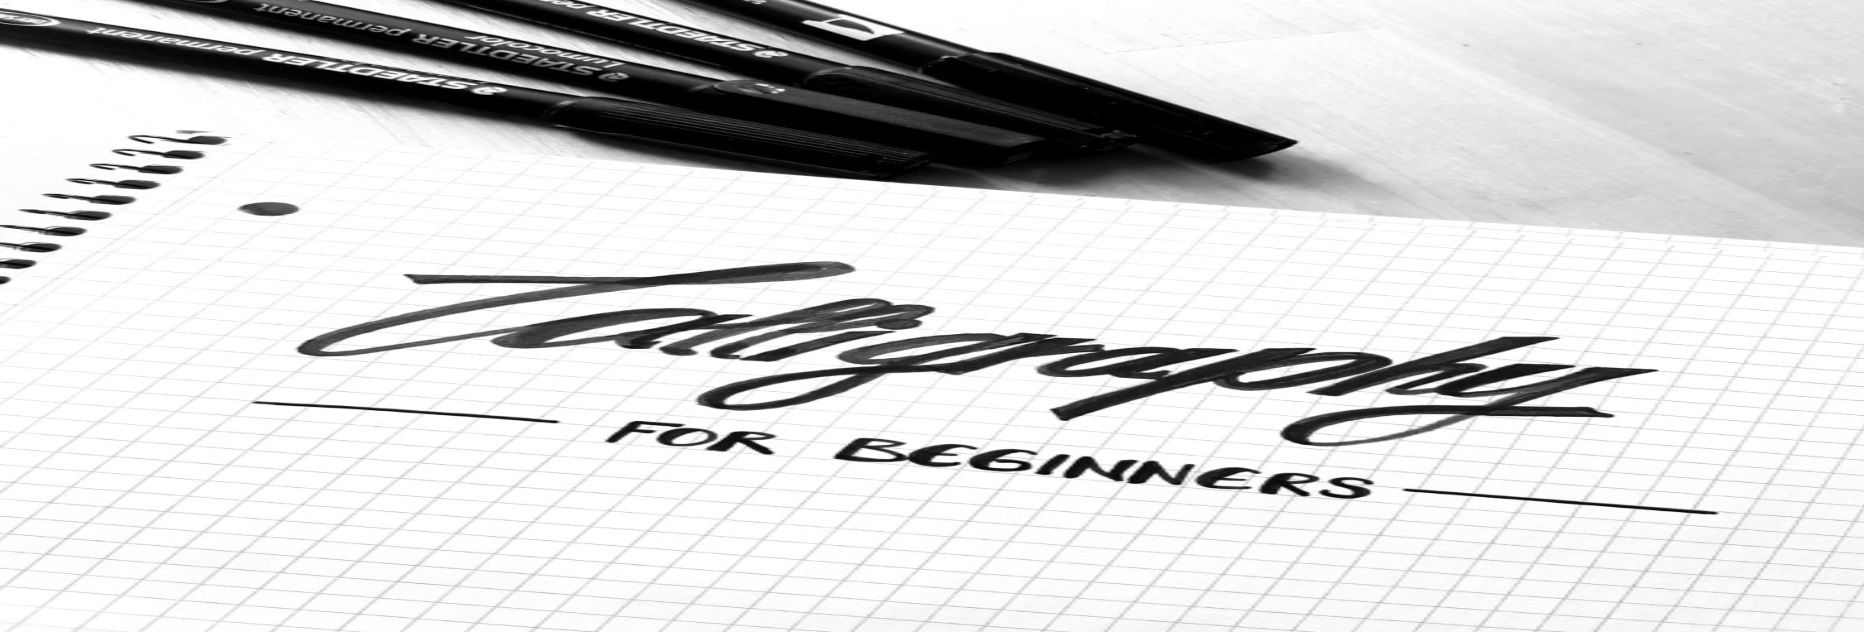 STAEDTLER permanent
STAEDTLER permanent
Lumocolor
STAEDTLER
Calligraphy
FOR BEGINNERS